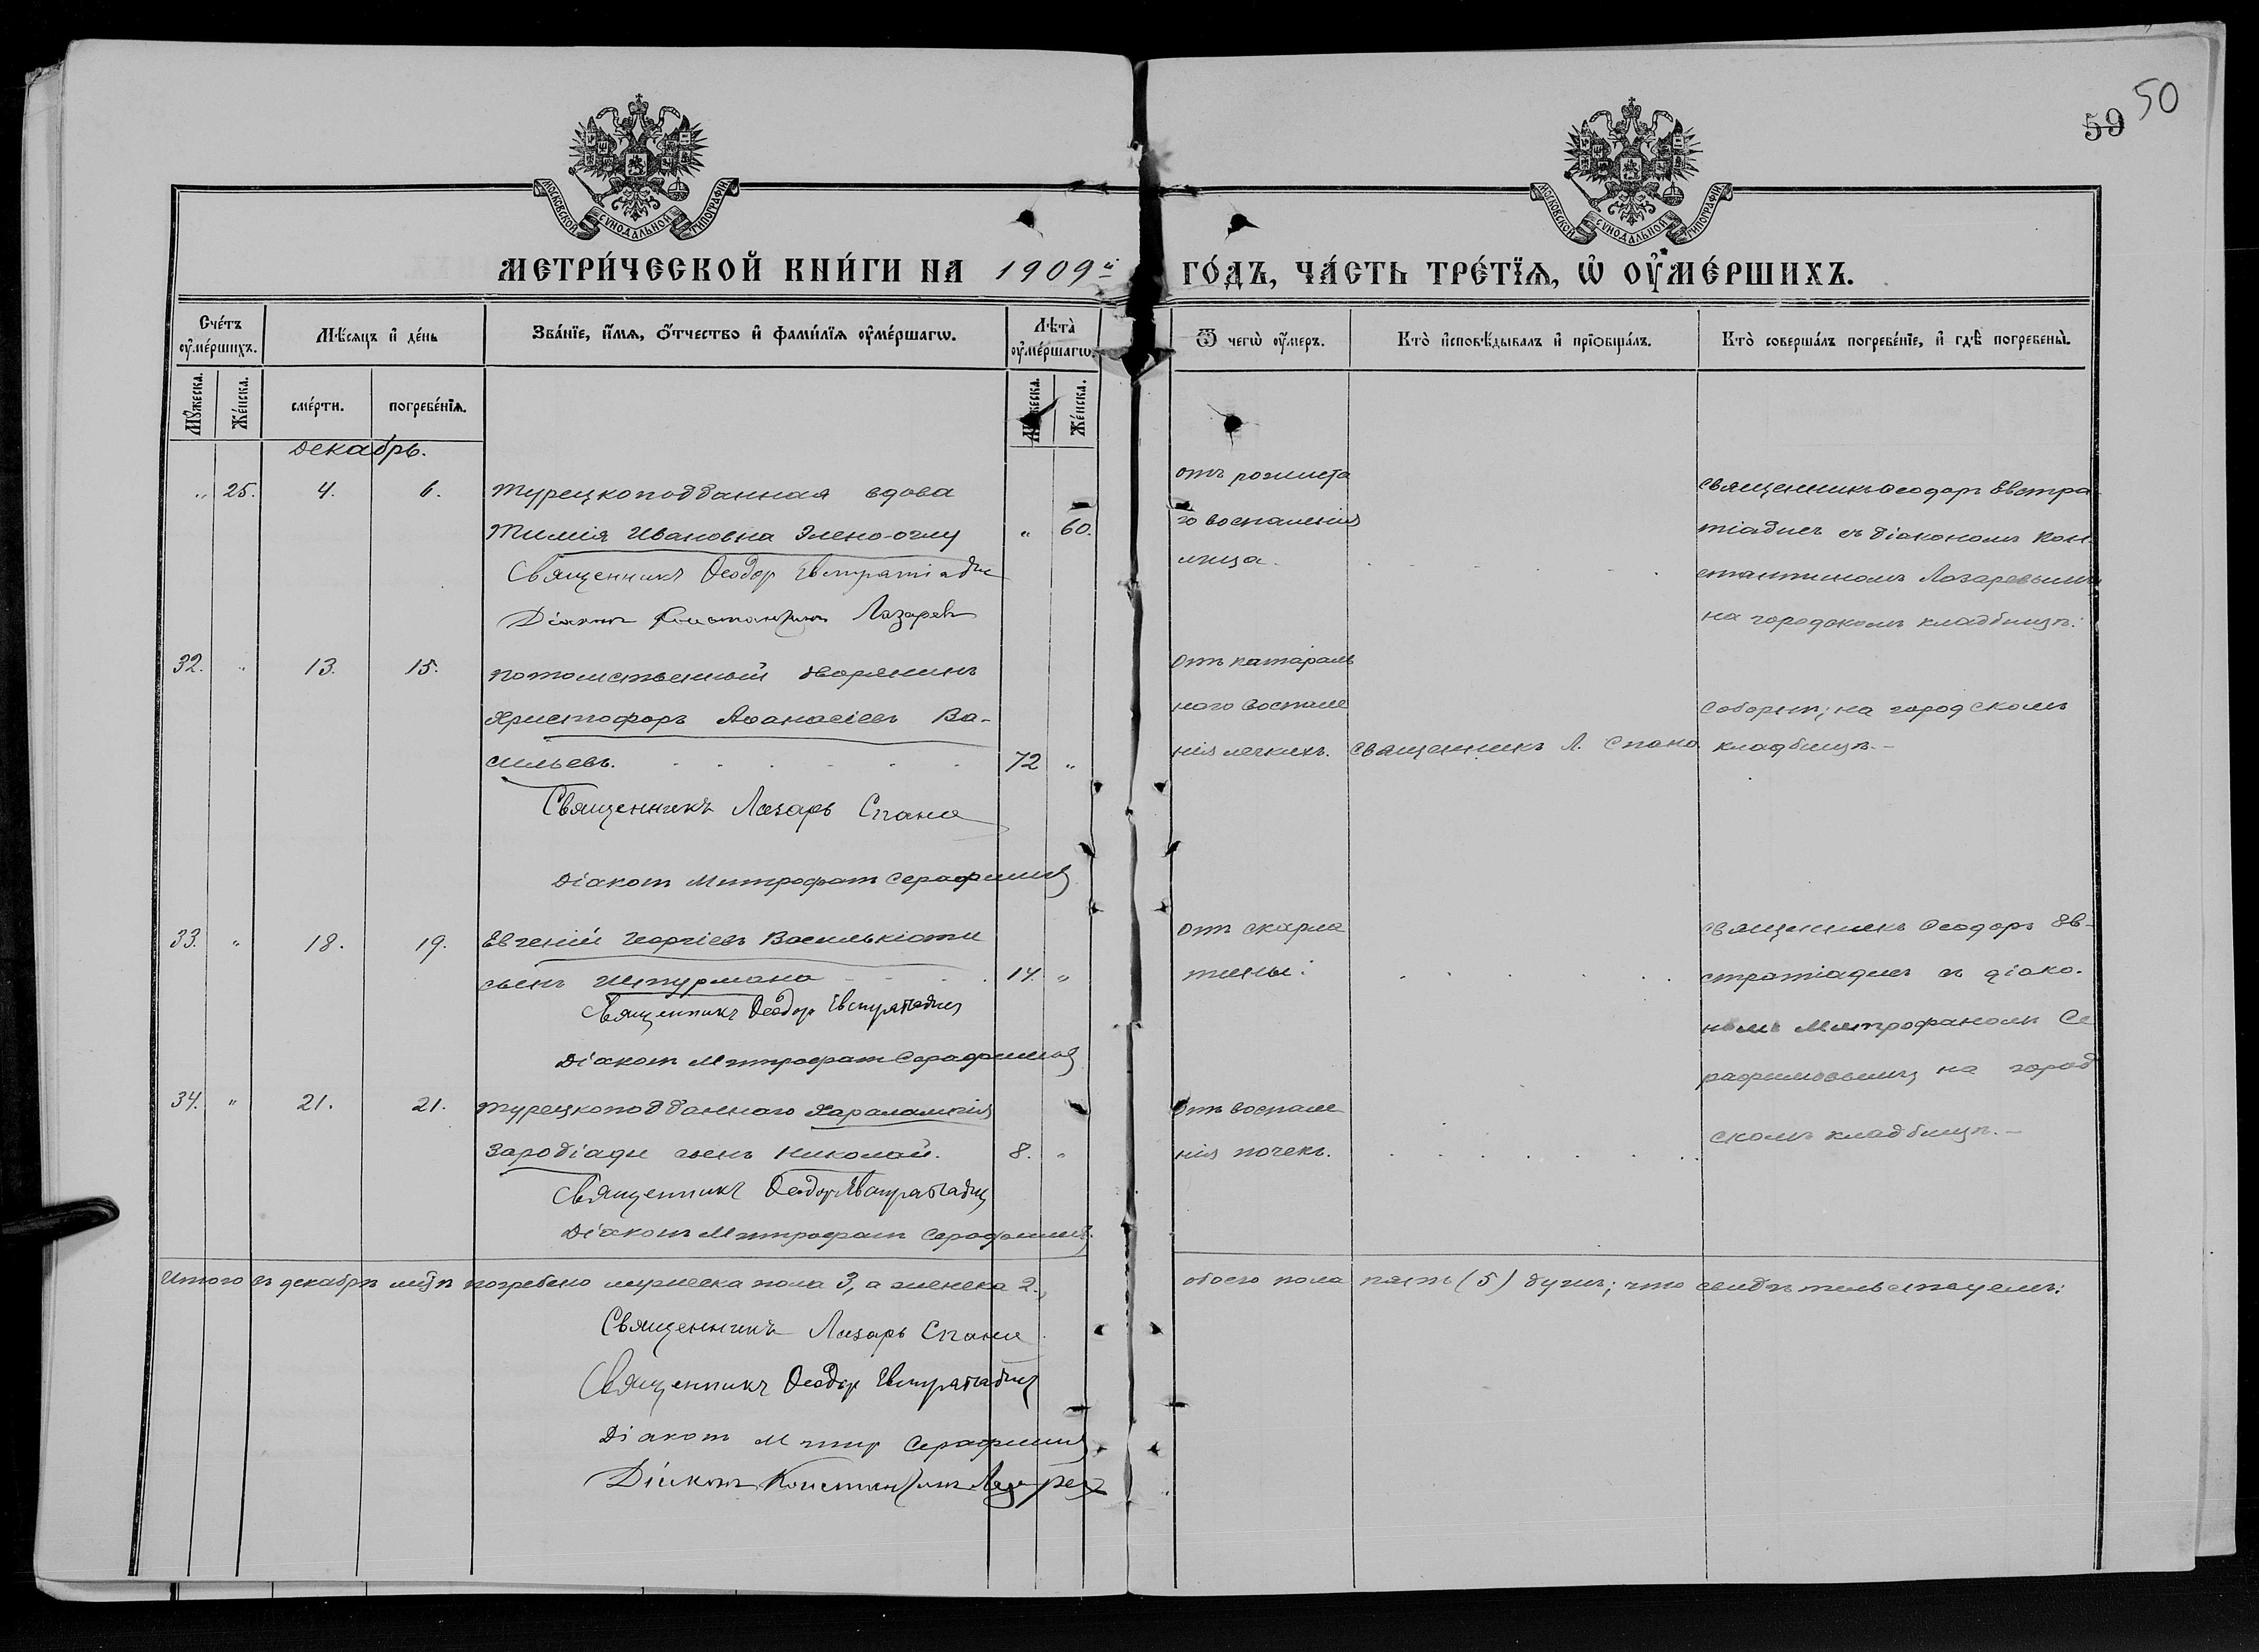 59 50
МОСКОВСКОЙ СѴНОДАЛЬНОЙ ТИПОГРАФІИ
МОСКОВСКОЙ СѴНОДАЛЬНОЙ ТИПОГРАФІИ
МЕТРИ́ЧЕСКОЙ КНИ́ГИ НА 1909й ГО́ДЪ, ЧА́СТЬ ТРЕ́ТЇѦ, Ѡ҆ ОУ҆МЕ́РШИХЪ.
Сче́тъ оу҆ме́ршихъ.
Мѣ́сяцъ и҆ де́нь
Зва́нїе, и҆́мѧ, ѻ҆́тчество и҆ фами́лїѧ оу҆ме́ршагѡ.
Лѣта̀ оу҆ме́ршагѡ.
Ѿ чегѡ̀ оу҆́меръ.
Кто̀ и҆сповѣ́дывалъ и҆ прїѻбща́лъ.
Кто̀ соверша́лъ погребе́нїе, и҆ гдѣ̀ погребены̀.
Мꙋ́жеска. Же́нска. сме́рти. погребе́нїѧ. Мꙋ́жеска. Же́нска.
Декабрь.
" 25. 4. 6. Турецкоподданная вдова
Ивановна Элено-оглу " 60.
Священникъ Ѳеодор Евстратіадис
Діаконъ Константинъ Лазарев
отъ рожиста
го воспаленія
лица.
Священникъ Ѳеодоръ Евстра-
тіадисъ съ діакономъ Кон-
стантиномъ Лазаревымъ
на городскомъ кладбищѣ.
32. " 13. 15. Потомственный дворянинъ
Христофоръ Аѳанасіевъ Ва-
сильевъ. 72 "
Священникъ Лазарь Спано
Діаконъ Митрофанъ Серафимовъ
Отъ катараль
наго воспале
нія легкихъ. Священникъ Л. Спано
Соборнѣ; на городскомъ
кладбищѣ.-
33. " 18. 19. Евгеній Георгіевъ Василькіоти
сынъ штурмана 14. "
Священникъ Ѳеодор Евстратіадис
Діаконъ Митрофанъ Серафимовъ
Отъ скарла
тины.
Священникъ Ѳеодоръ Ев-
стратіадисъ съ діако-
номъ Митрофаномъ Се
рафимовымъ на город
скомъ кладбищѣ.-
34. " 21. 21. Турецкоподданнаго Харалампія
Зародіади сынъ Николай. 8. "
Священникъ Ѳеодор Евстратіадис
Діаконъ Митрофанъ Серафимовъ
Отъ воспале
нія почекъ.
Итого въ декабрѣ мцѣ погребено мужеска пола 3, а женска 2., обоего пола пять (5) душъ; что свидѣтельствуемъ:
Священникъ Лазарь Спано
Священникъ Ѳеодор Евстратіадис
Діаконъ Митр Серафимовъ
Діаконъ Константинъ Лазарев